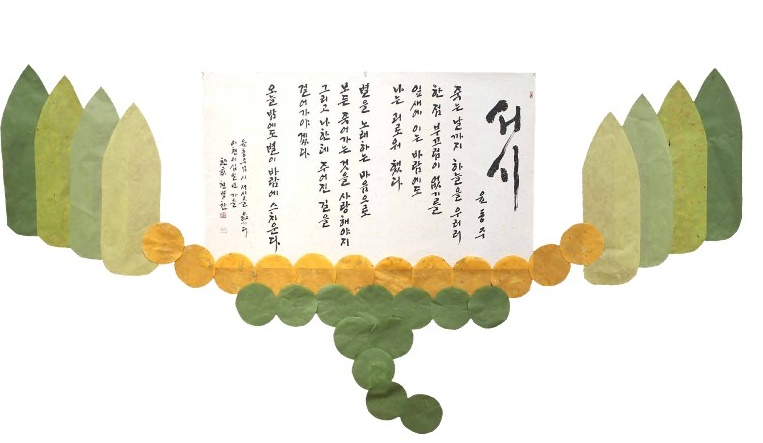 서시
윤동주
죽는 날까지 하늘을 우러러
한점 부끄럼이 없기를
잎새에 이는 바람에도
나는 괴로워 했다
별을 노래하는 마음으로
모든 죽어가는 것을 사랑해야지
그리고 나한테 주어진 길을
걸어가야겠다
오늘 밤에도 별이 바람에 스치운다.
윤동주님 시 서시를
가을